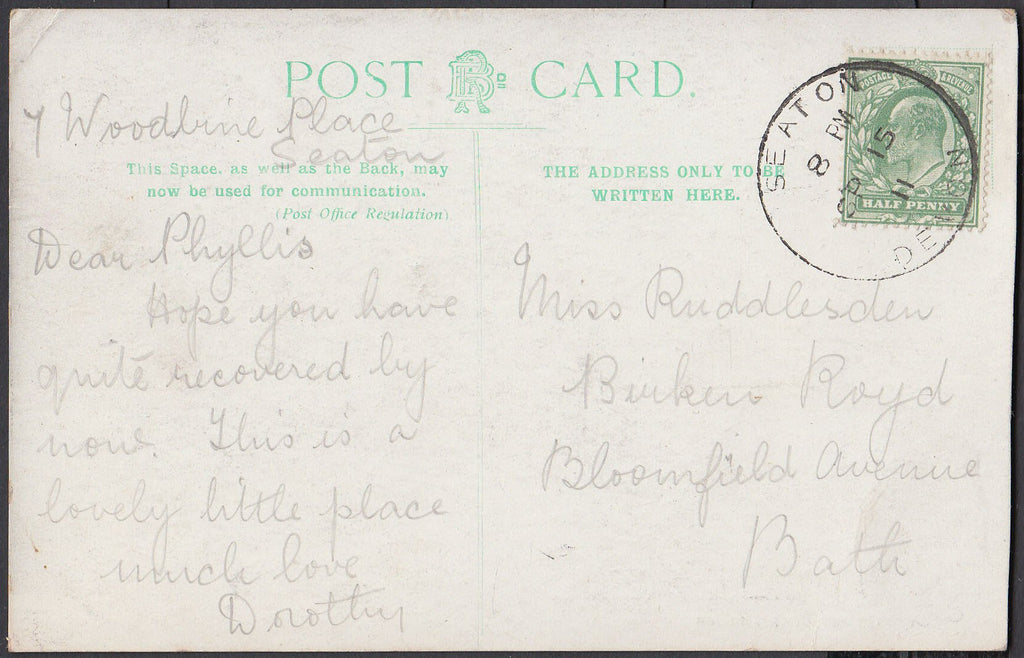 POST CARD.
7 Woodbine Place
Seaton
This Space, as well as the Back, may
now be used for communication.
(Post Office Regulation)
Dear Phyllis
Hope you have
quite recovered by
now. This is a
lovely little place
much love
Dorothy
THE ADDRESS ONLY TO BE
WRITTEN HERE.
Miss Ruddlesden
Birken Royd
Bloomfield Avenue
Bath
POSTAGE & REVENUE
HALF PENNY
SEATON
8 PM
15
11
DEVON